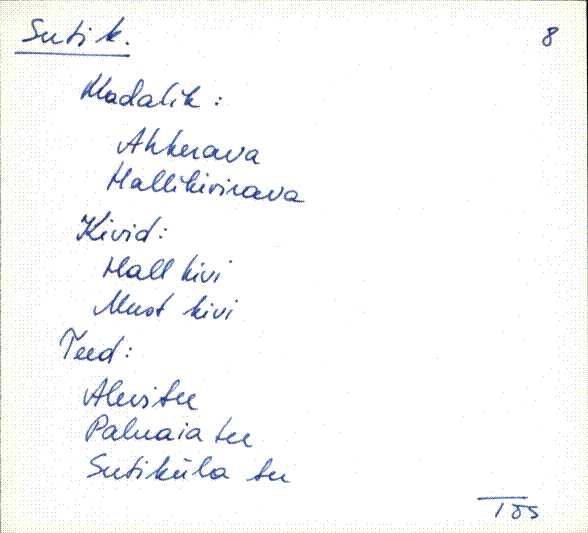 Suti k.
8
Madalik:
Ahkerava
Hallikivirava
Kivid:
Hall kivi
Must kivi
Teed:
Alevi tee
Paluaia tee
Sutiküla tee